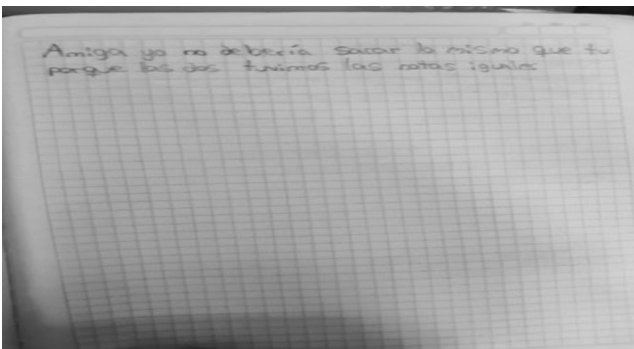 Amiga yo no debería sacar lo mismo que tu
porque las dos tuvimos las notas iguales